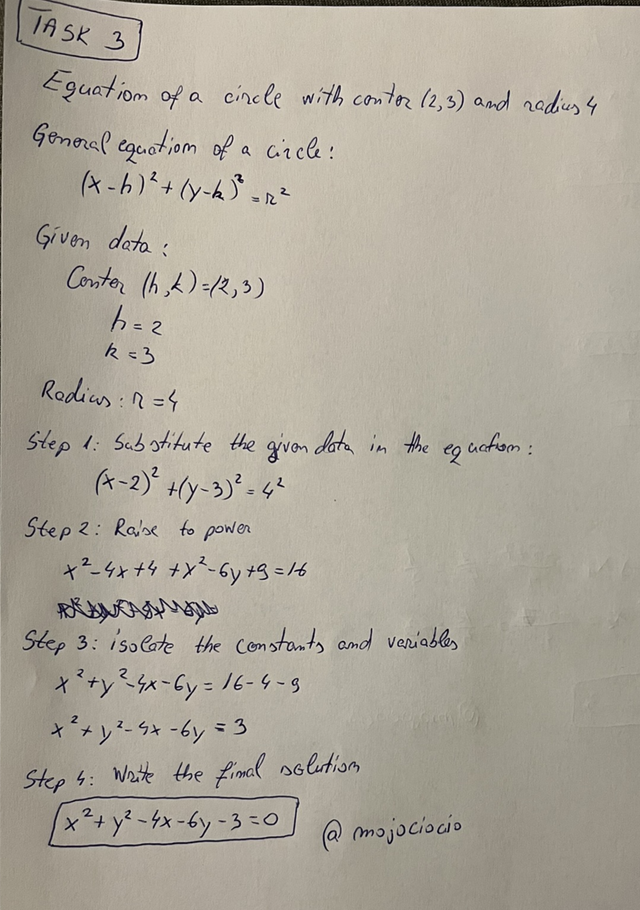 TASK 3
Equation of a circle with center (2,3) and radius 4
General equation of a circle:
(x-h)²+(y-k)²=r²
Given data:
Center (h,k)=(2,3)
h=2
k=3
Radius: r=4
Step 1: Substitute the given data in the equation:
(x-2)²+(y-3)²=4²
Step 2: Raise to power
x²-4x+4+x²-6y+9=16
Step 3: isolate the constants and variables
x²+y²-4x-6y=16-4-9
x²+y²-4x-6y=3
Step 4: Write the final solution
x²+y²-4x-6y-3=0
@mojociocio